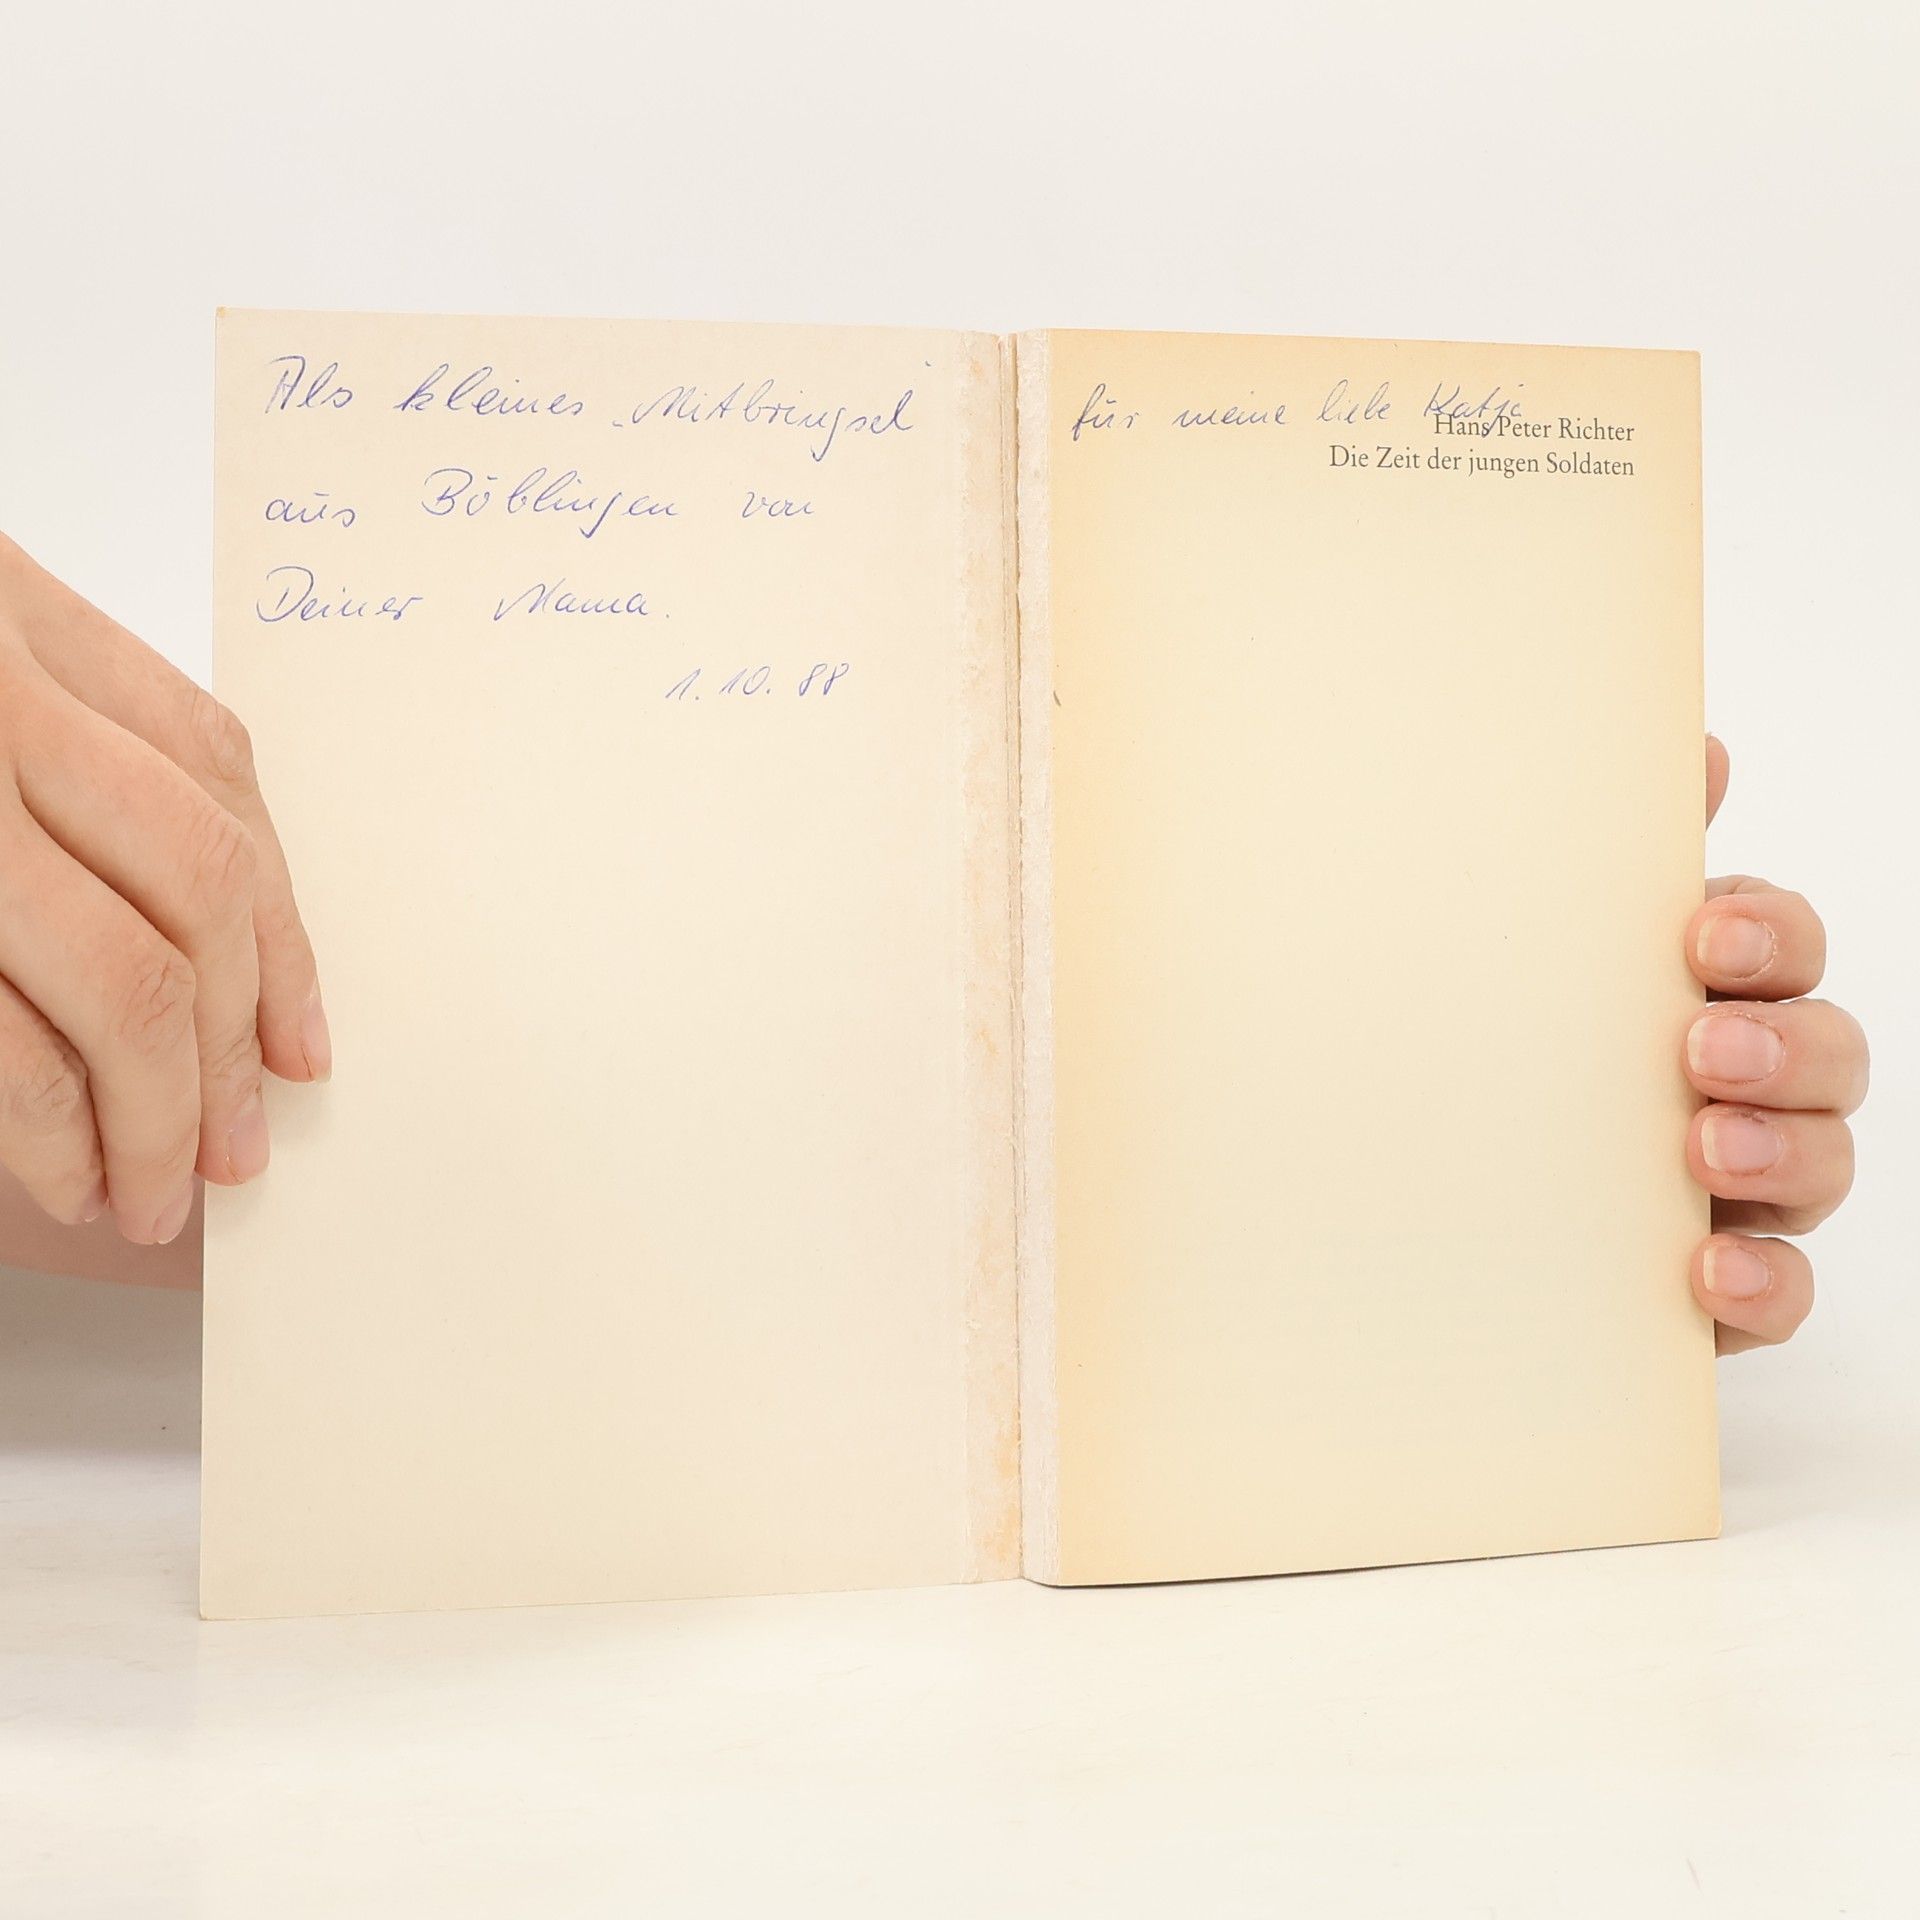 Als kleines „Mitbringsel“
aus Böblingen von
Deiner Mama.
1.10.88
für meine liebe Katja
Hans Peter Richter
Die Zeit der jungen Soldaten